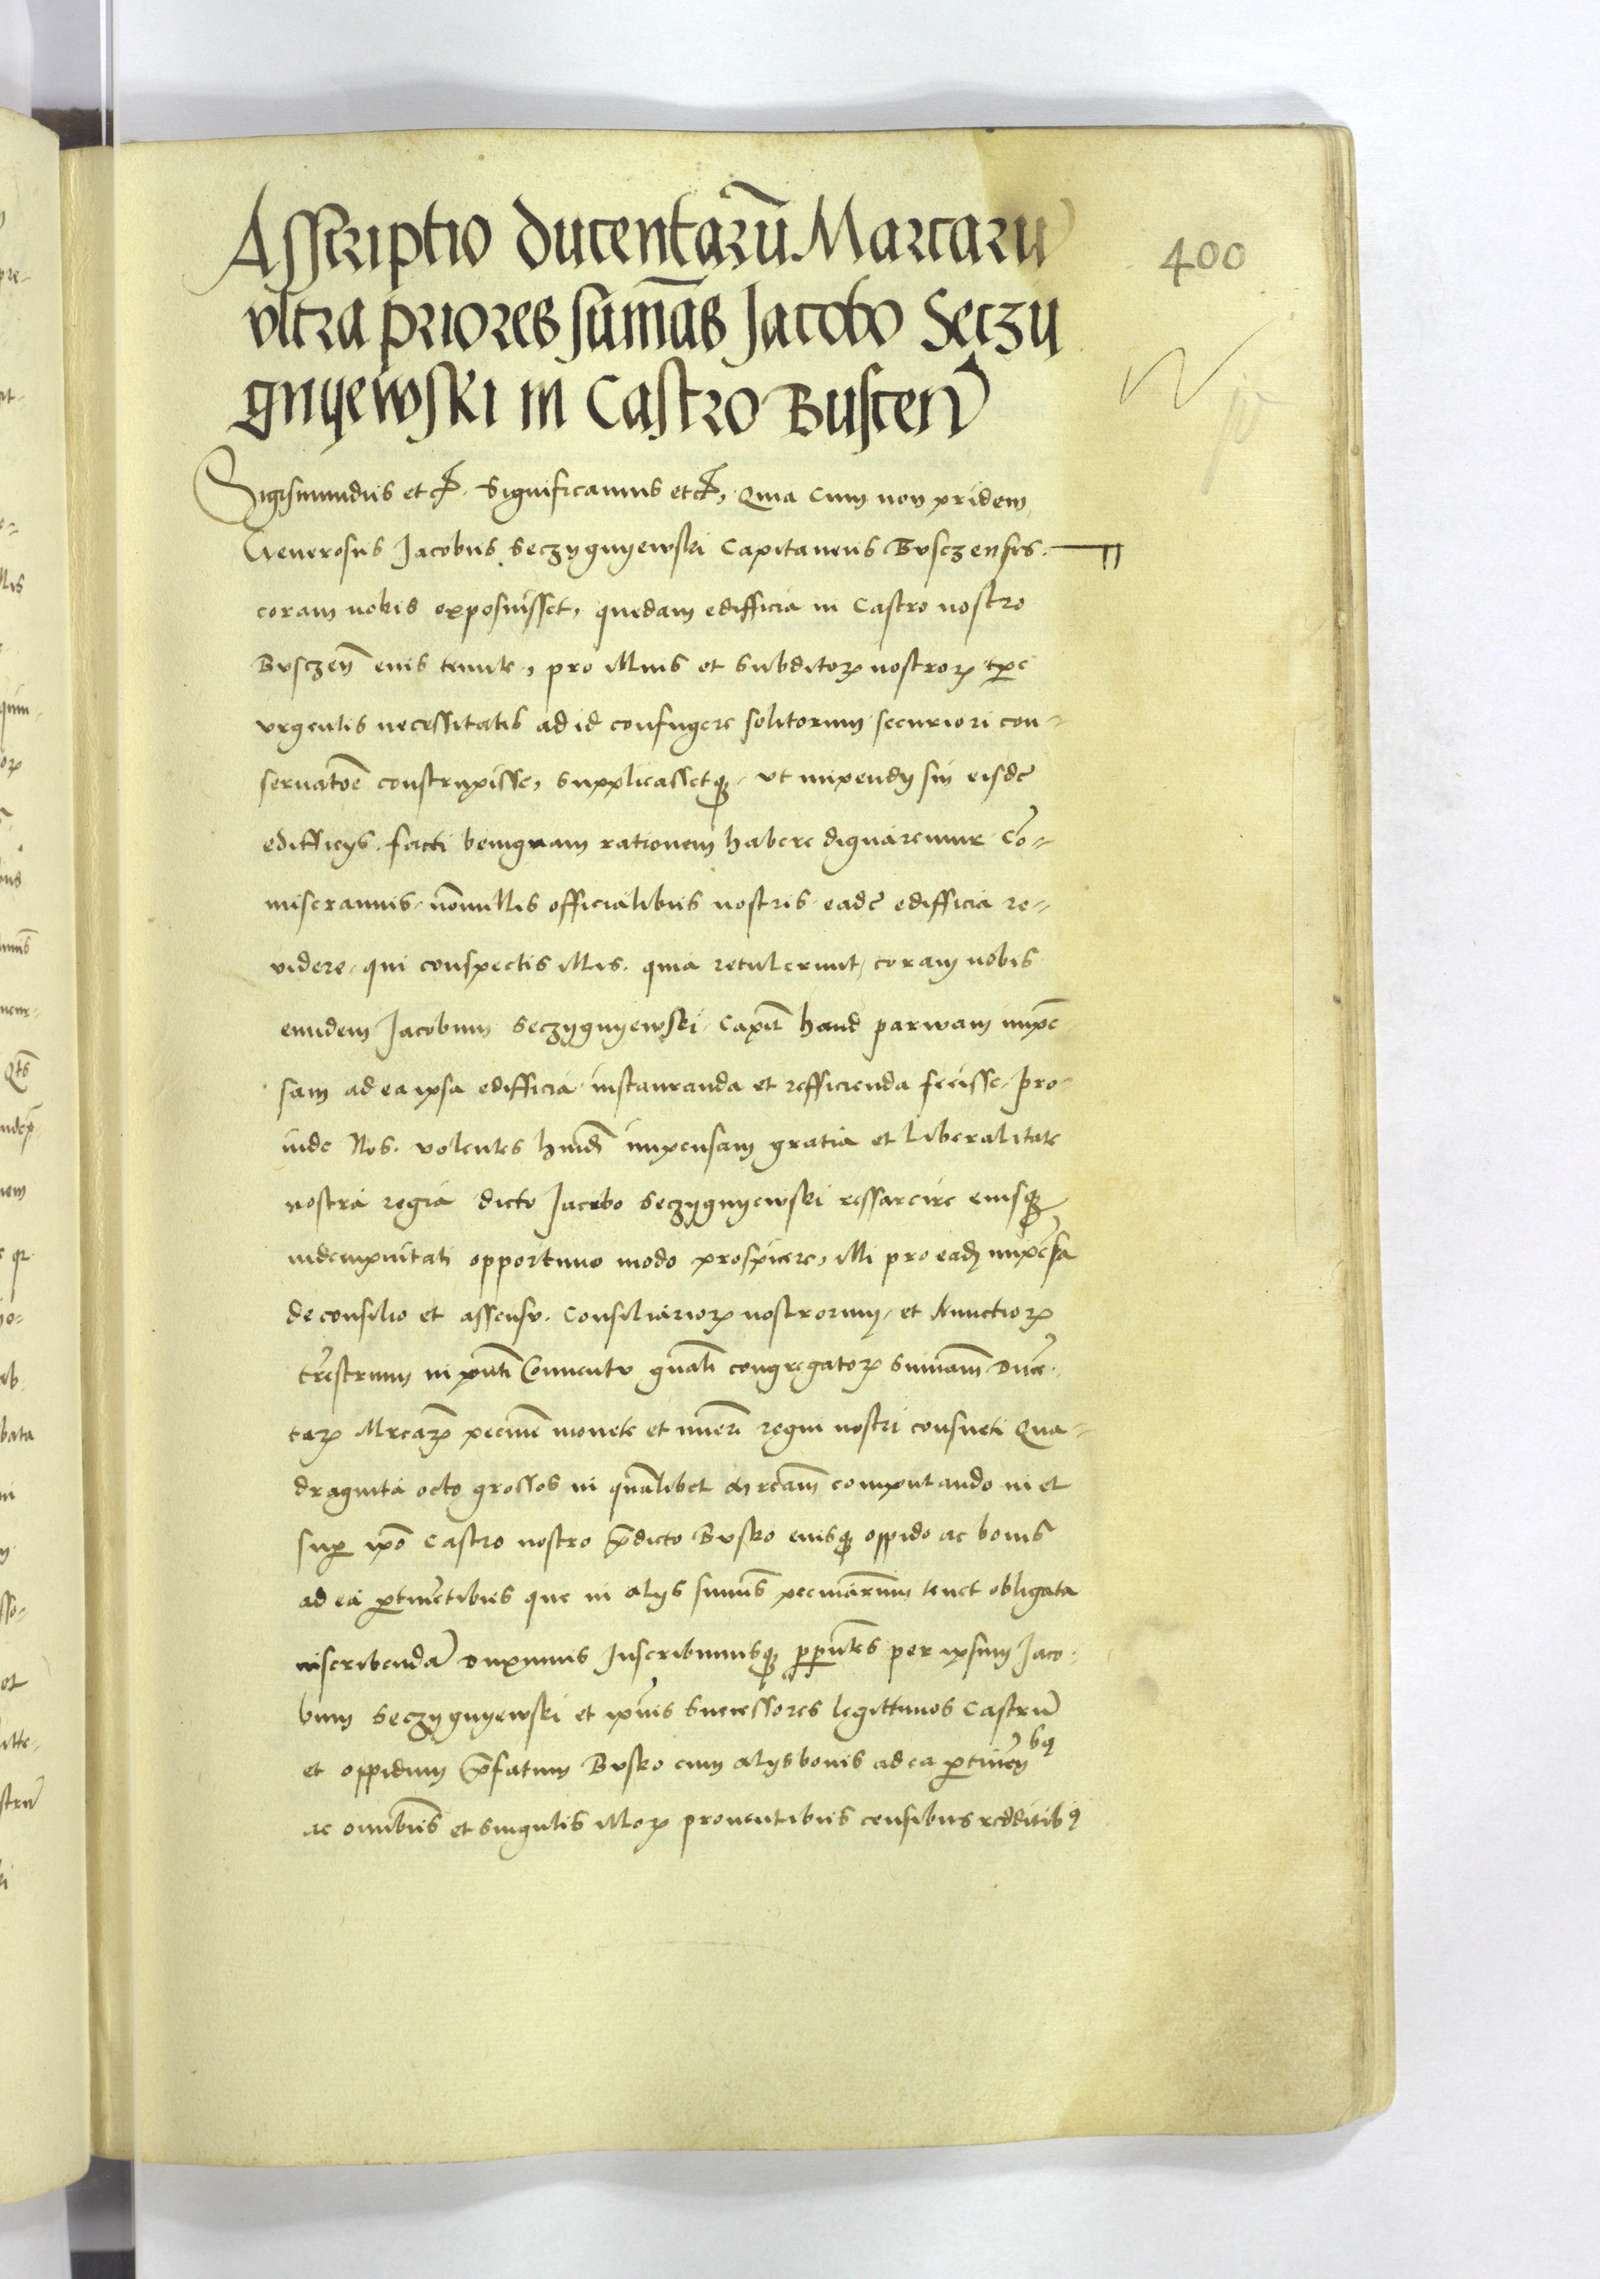 Asscriptio ducentarū Marcarū
vltra priores sūmas Jacobo Seczy
gnyewski in Castro Buscen̄
400
Sigismundus etc. Significamus etc, Quia Cum non pridem
Generosus Jacobus Seczygnyewski Capitaneus Busczensis.
coram nobis exposuisset, quedam edifficia in Castro nostro
Busczen̄ eius tenute, pro illius et subditoꝝ nostroꝝ tp̄e
vrgentis necessitatis ad id confugere solitorum securiori con=
seruatōe construxisse, supplicassetqꝫ, vt impendij sui eisdē
edifficijs facti benignam rationem habere dignaremur Cō=
miseramus nōnullis officialibus nostris eadē edifficia re=
videre, qui conspectis illis, quia retulerunt, coram nobis
eundem Jacobum Seczygnyewski Capitn̄ haud parwam impē
sam ad ea ipsa edifficia instauranda et refficienda fecisse, pro=
inde Nos volentes hmōi impensam gratia et liberalitate
nostra regia dicto Jacobo Seczygnyewski ressarcire eiusqꝫ
indempnitati opportuno modo prospicere, illi pro eadꝫ impēsa
de consilio et assensu Consiliarioꝝ nostrorum, et Nunctioꝝ
trēstrium in p̄nti Conuentu gn̄ali congregatoꝝ Summam Ducē
taꝝ Mrcaꝝ pecunie monete et numeri regni nostri consueti Qua=
draginta octo grossos in qualibet Mrcam computando in et
super ip̄o Castro nostro p̄dicto Busko eiusqꝫ oppido ac bonis
ad ea ꝑtinētibus que in alijs summis pecuniarum tenet obligata
inscribendā Duximus Inscribimusqꝫ pn̄tes per ipsum Jaco
bum Seczygnyewski et ip̄ius Successores legittimos Castrū
et oppidum p̄fatum Busko cum alijs bonis ad ea ꝑtinen̄bꝫ
ac omībus et singulis illoꝝ prouentibus censibus redditibꝫ